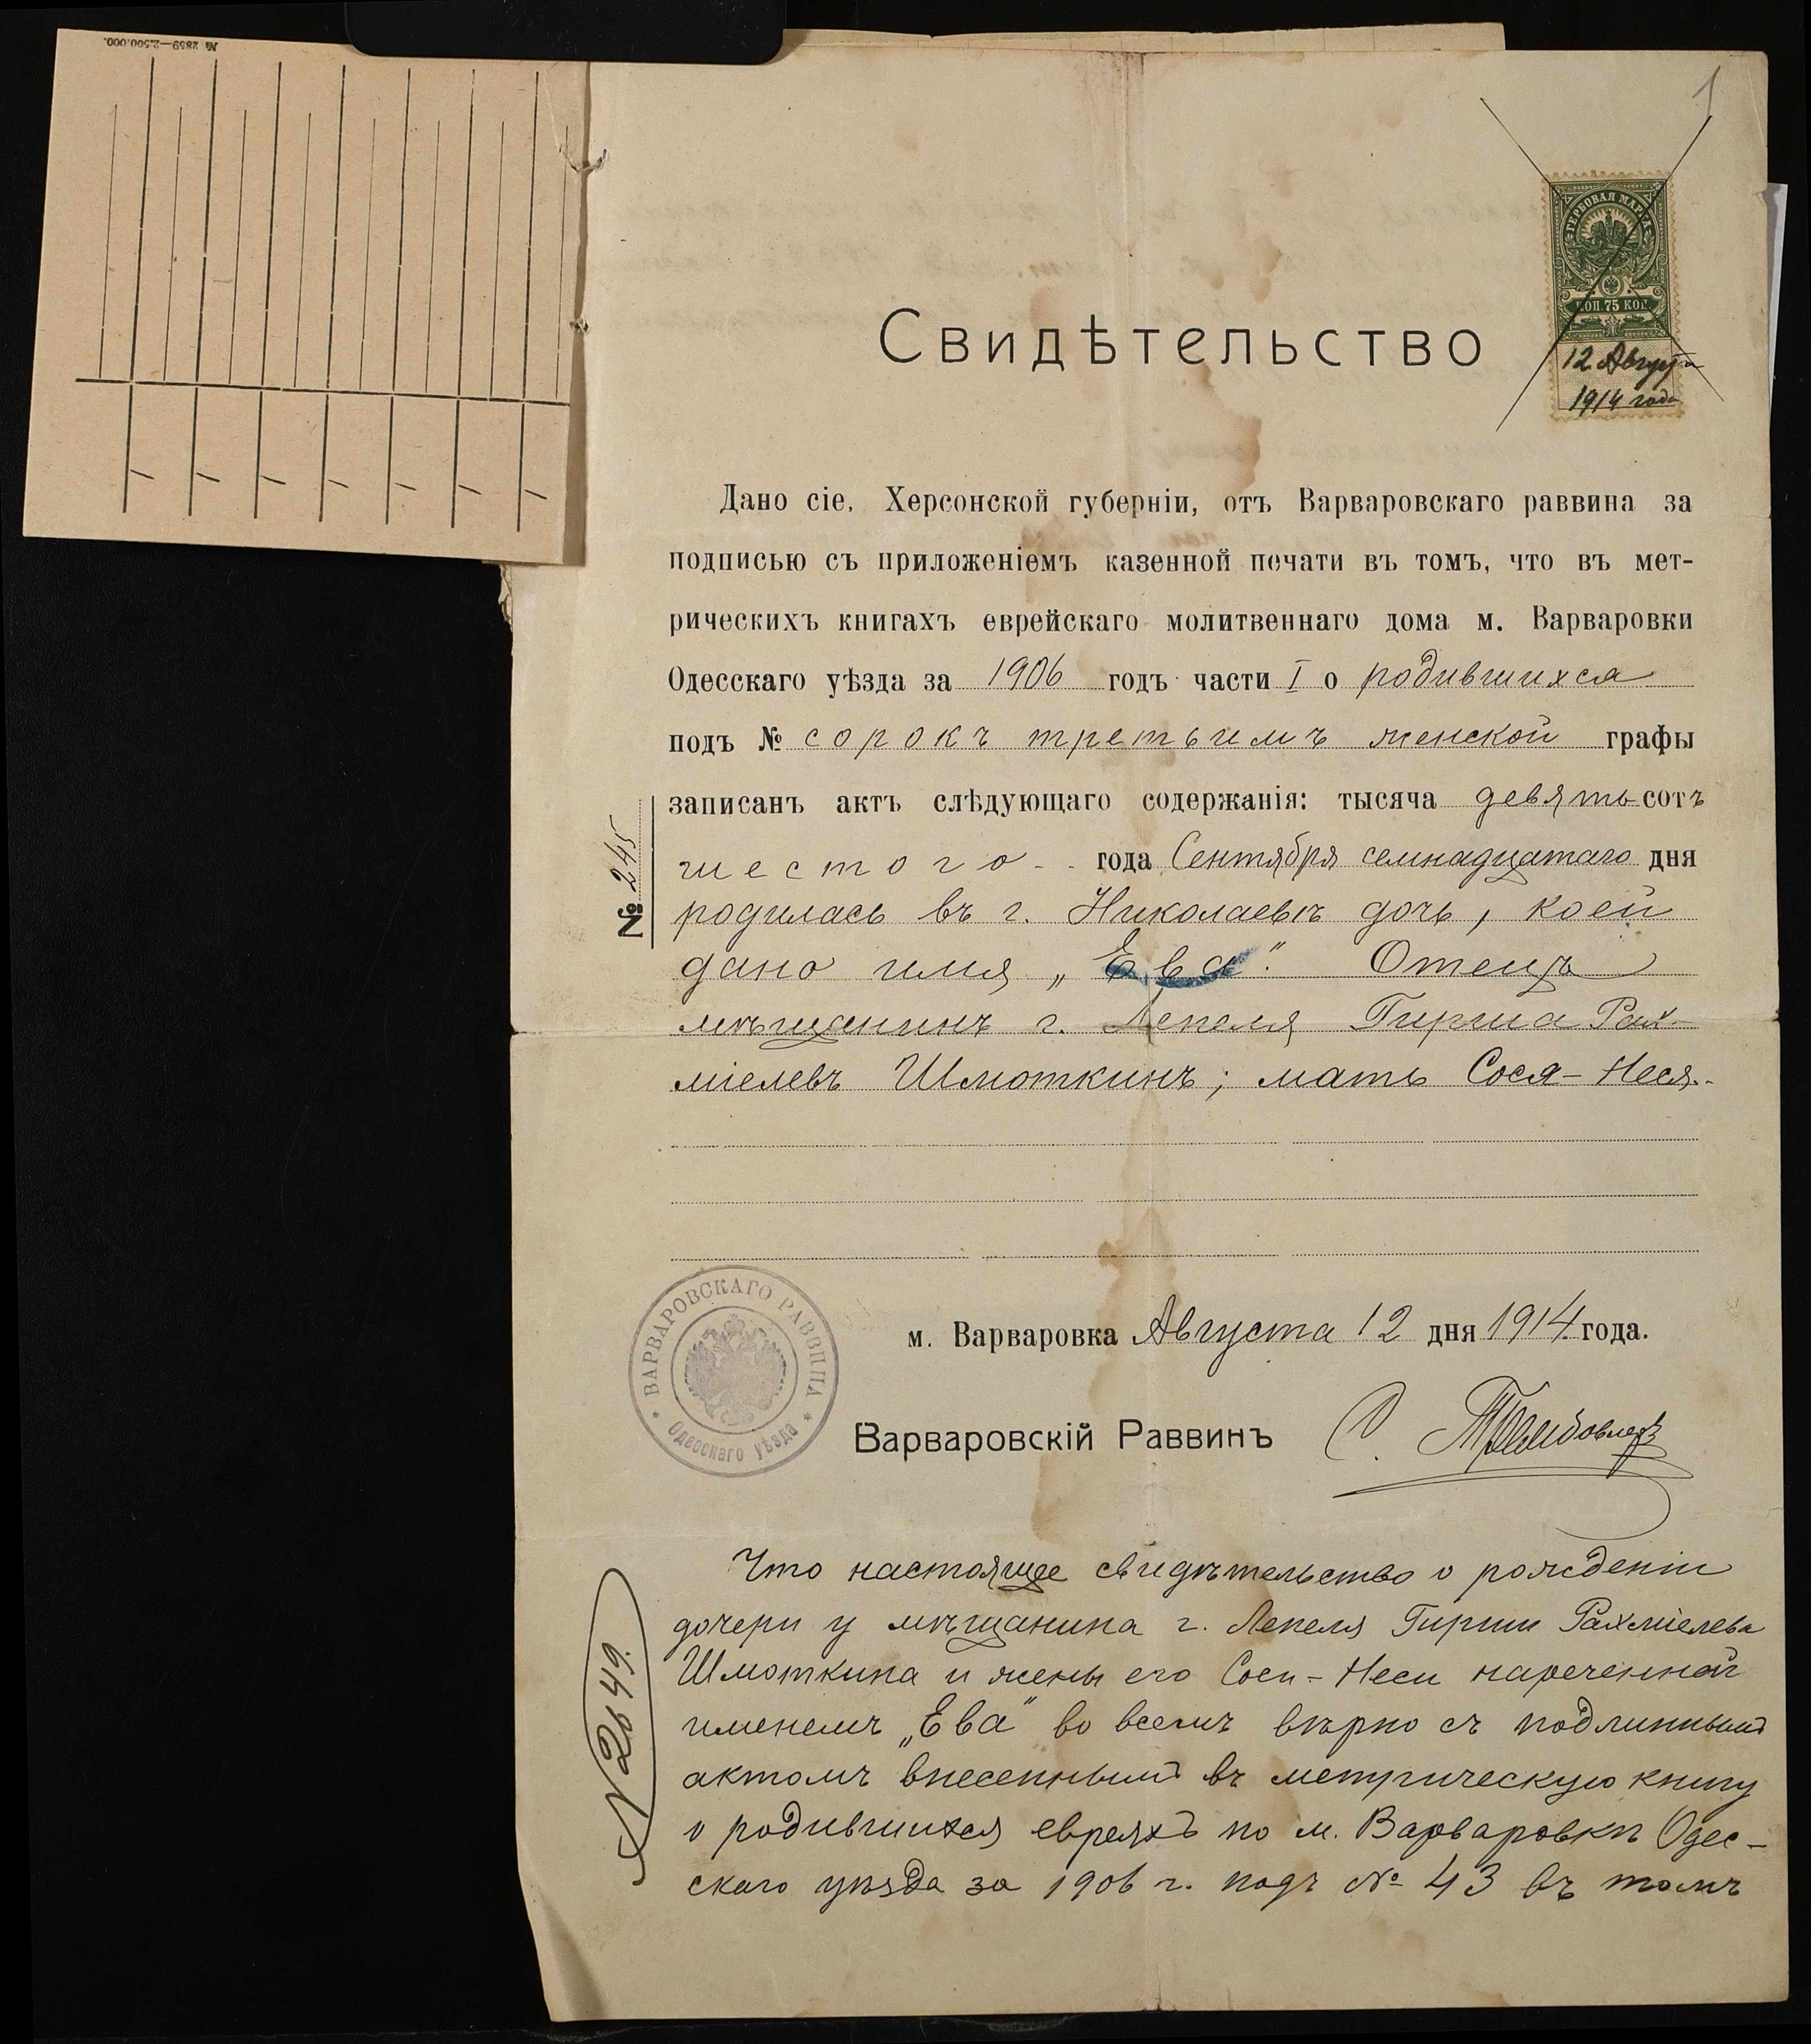 № 2859—2.500.000.
1
ГЕРБОВАЯ МАРКА
КОП. 75 КОП.
12 Августа
1914 года
Свидѣтельство
Дано сіе, Херсонской губерніи, отъ Варваровскаго раввина за
подписью съ приложеніемъ казенной печати въ томъ, что въ мет-
рическихъ книгахъ еврейскаго молитвеннаго дома м. Варваровки
Одесскаго уѣзда за 1906 годъ части I о родившихся
подъ № сорокъ третьимъ женской графы
записанъ актъ слѣдующаго содержанія: тысяча девятьсотъ
шестого года Сентября семнадцатаго дня
родилась въ г. Николаевѣ дочь, коей
дано имя „Ева". Отецъ
мѣщанинъ г. Лепеля Гирша Рах-
міелевъ Шмоткинъ; мать Сося-Неся.
№ 245
м. Варваровка Августа 12 дня 1914 года.
ВАРВАРОВСКАГО РАВВИНА
Одесскаго уѣзда
Варваровскій Раввинъ С.
Что настоящее свидѣтельство о рожденіи
дочери у мѣщанина г. Лепеля Гирши Рахміелева
Шмоткина и жены его Соси-Неси нареченной
именемъ „Ева" во всемъ вѣрно съ подлиннымъ
актомъ внесеннымъ въ метрическую книгу
о родившихся евреяхъ по м. Варваровкѣ Одес-
скаго уѣзда за 1906 г. подъ № 43 въ томъ
№ 2649.